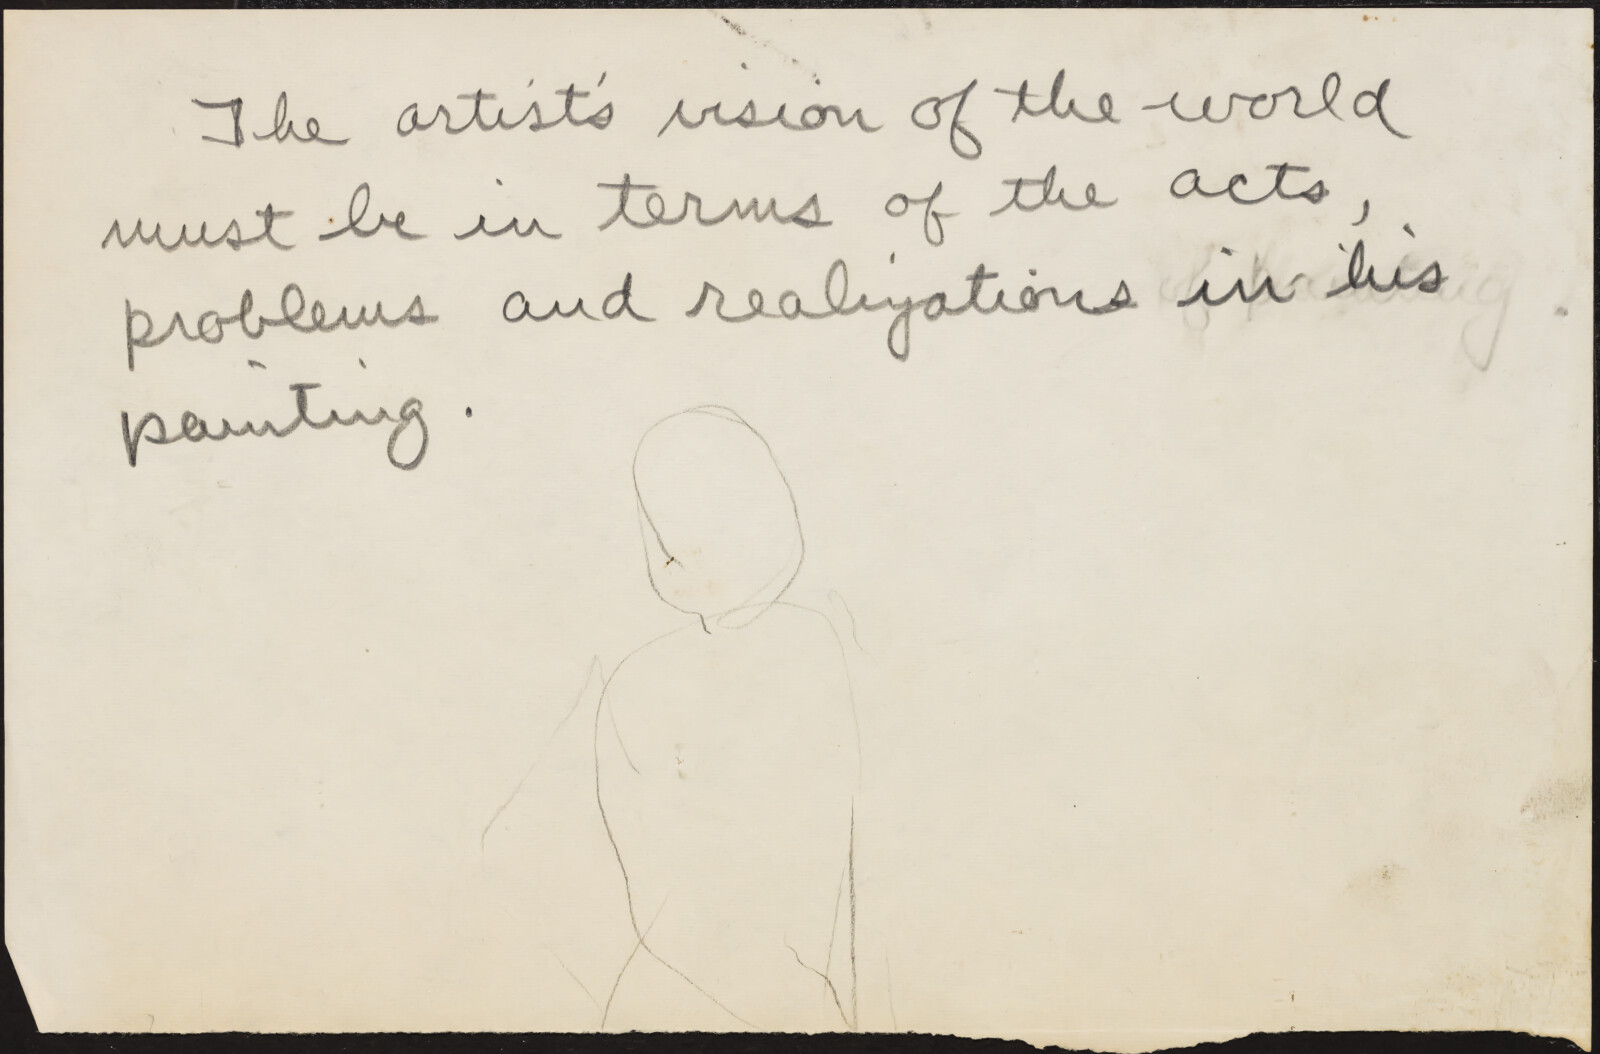 The artist's vision of the world
must be in terms of the acts,
problems and realizations in his
painting.